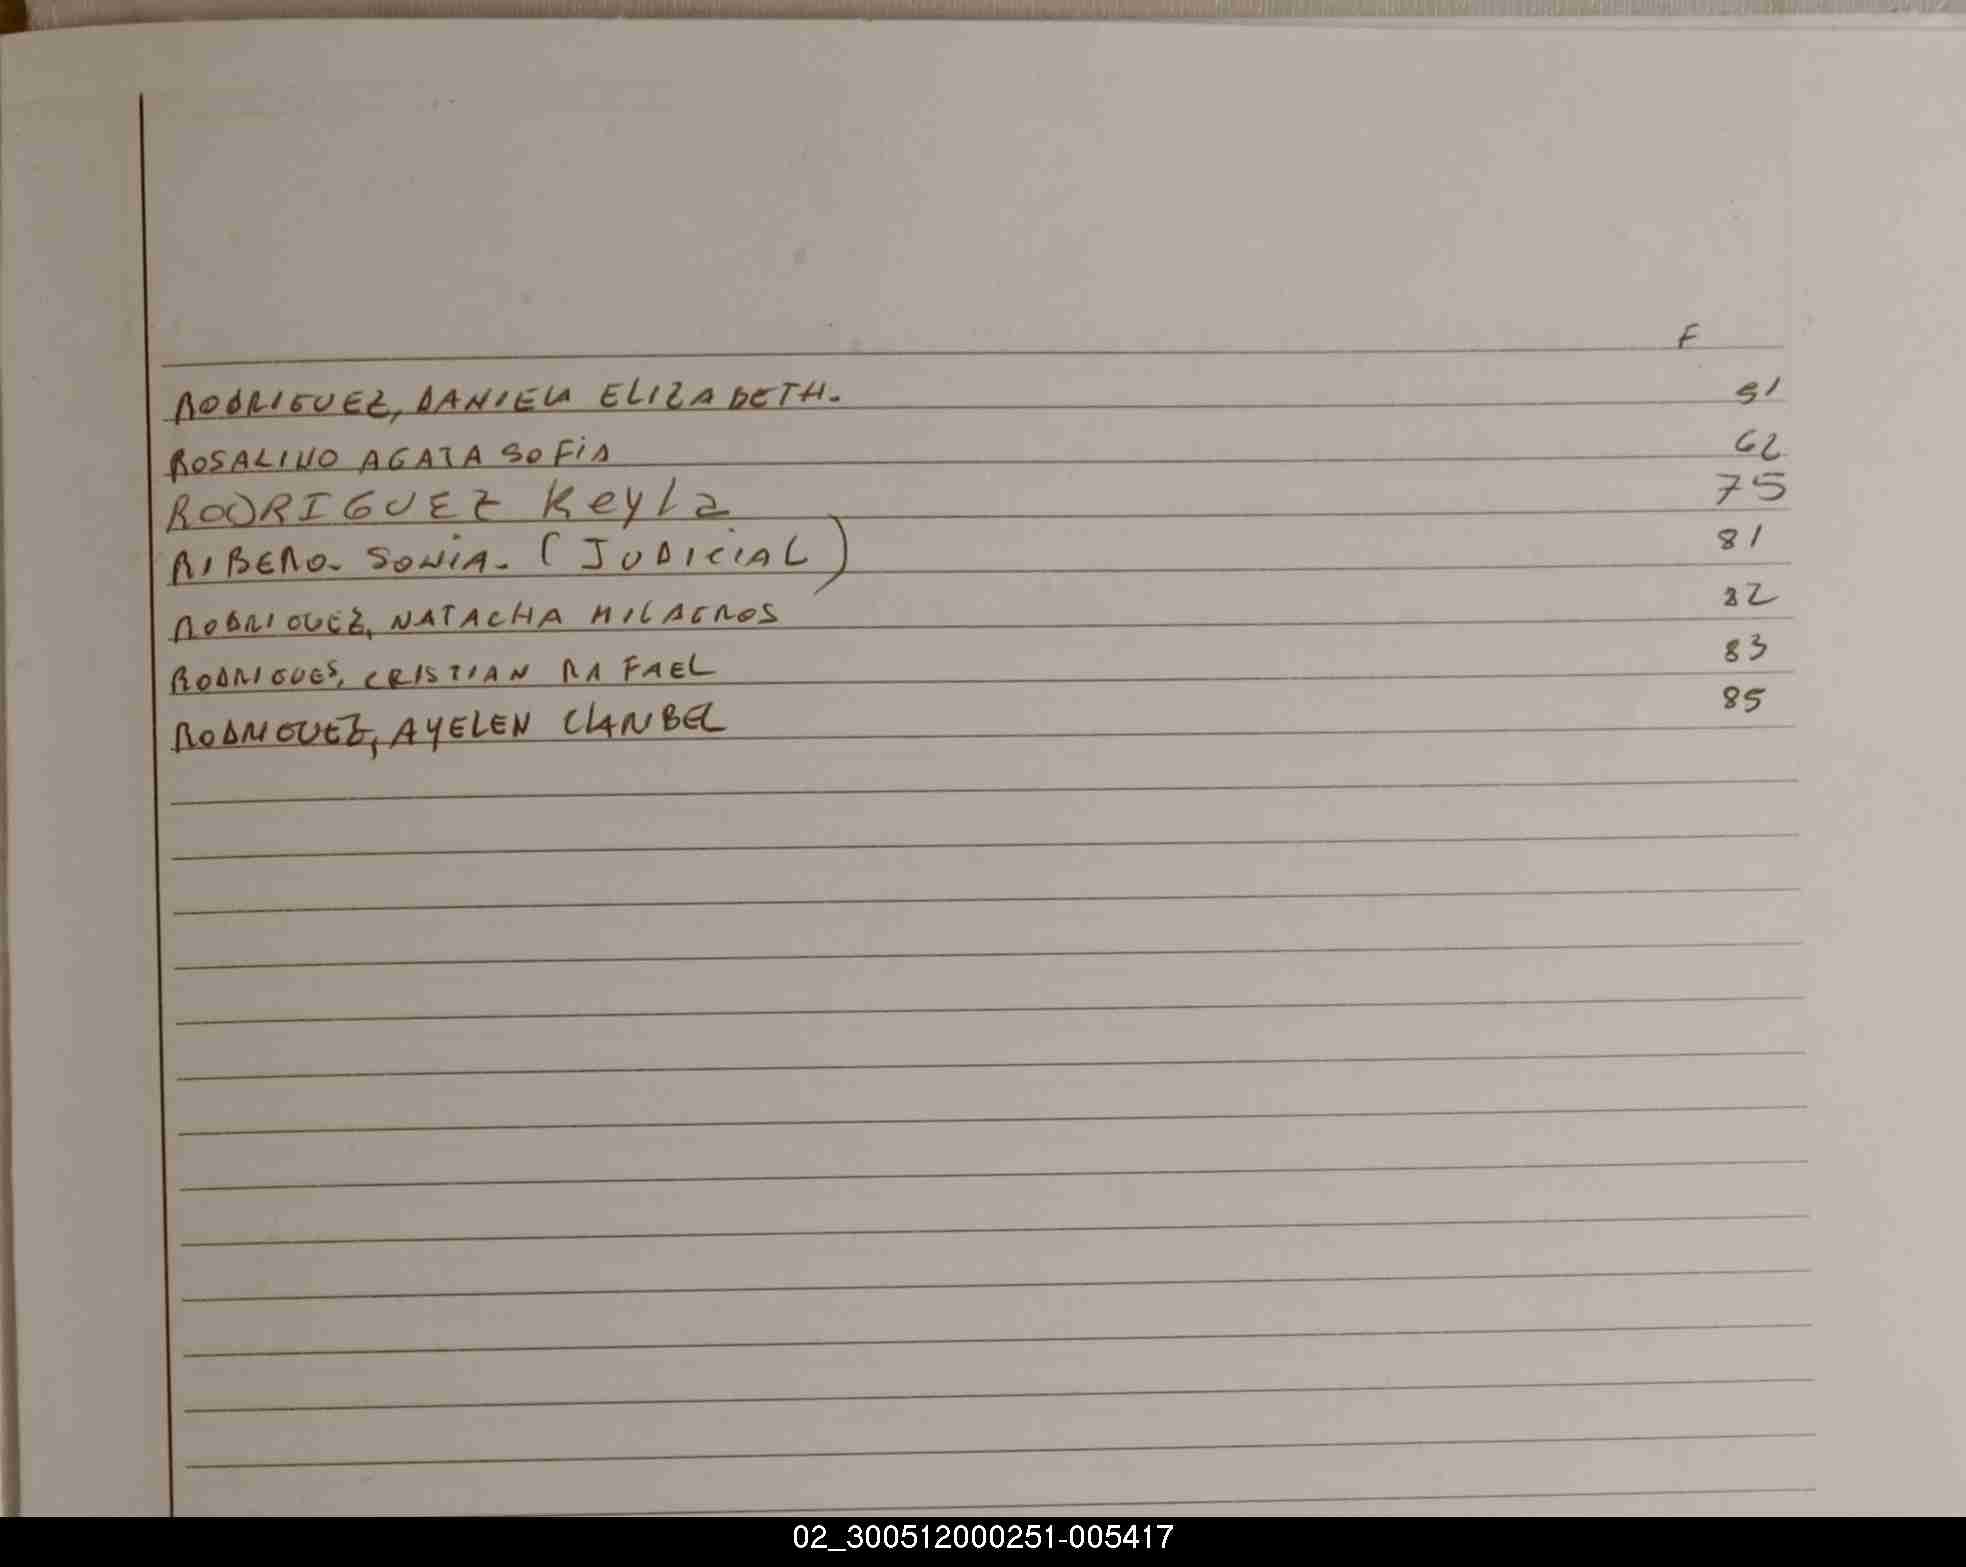 F
RODRIGUEZ, DANIELA ELIZABETH. 51
ROSALINO AGATA SOFiA 62
RODRIGUEZ Keyla 75
RIBERO. SONiA. (JUDICIAL) 81
RODRIGUEZ, NATACHA MILAGROS 82
RODRIGUES, CRISTIAN RAFAEL 83
RODRIGUEZ, AYELEN CLARIBEL 85
02_300512000251-005417